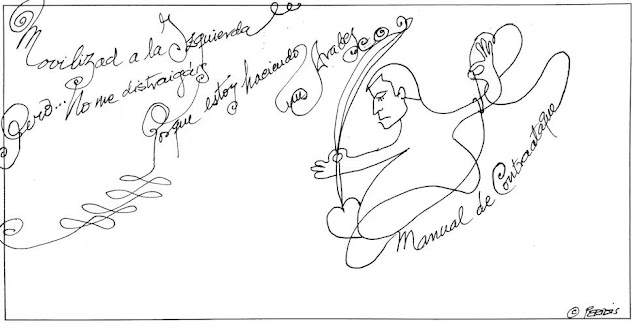 Movilizad a la Izquierda
Pero... No me distraigáis
Porque estoy haciendo Arabescos
Manual de Contraataque
© PERIDIS